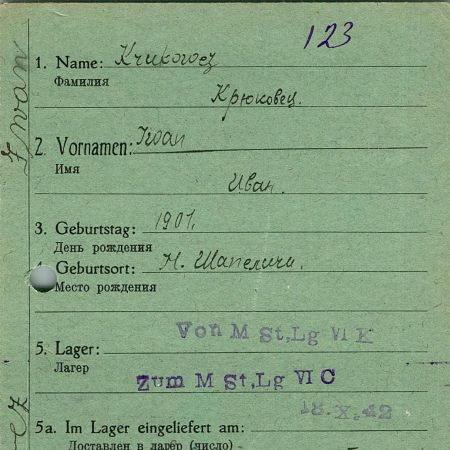 123
1. Name: Kriukowez
Фамилия
Крюковец.
2. Vornamen: Iwan
Имя
Иван.
3. Geburtstag: 1901.
День рождения
4. Geburtsort: Н. Шапеличи.
Место рождения
Von M St,Lg VI K
5. Lager:
Лагерь
zum M St,Lg VI C
18.X.42
5a. Im Lager eingeliefert am:
Доставлен в лагерь (число)
Iwan
ez